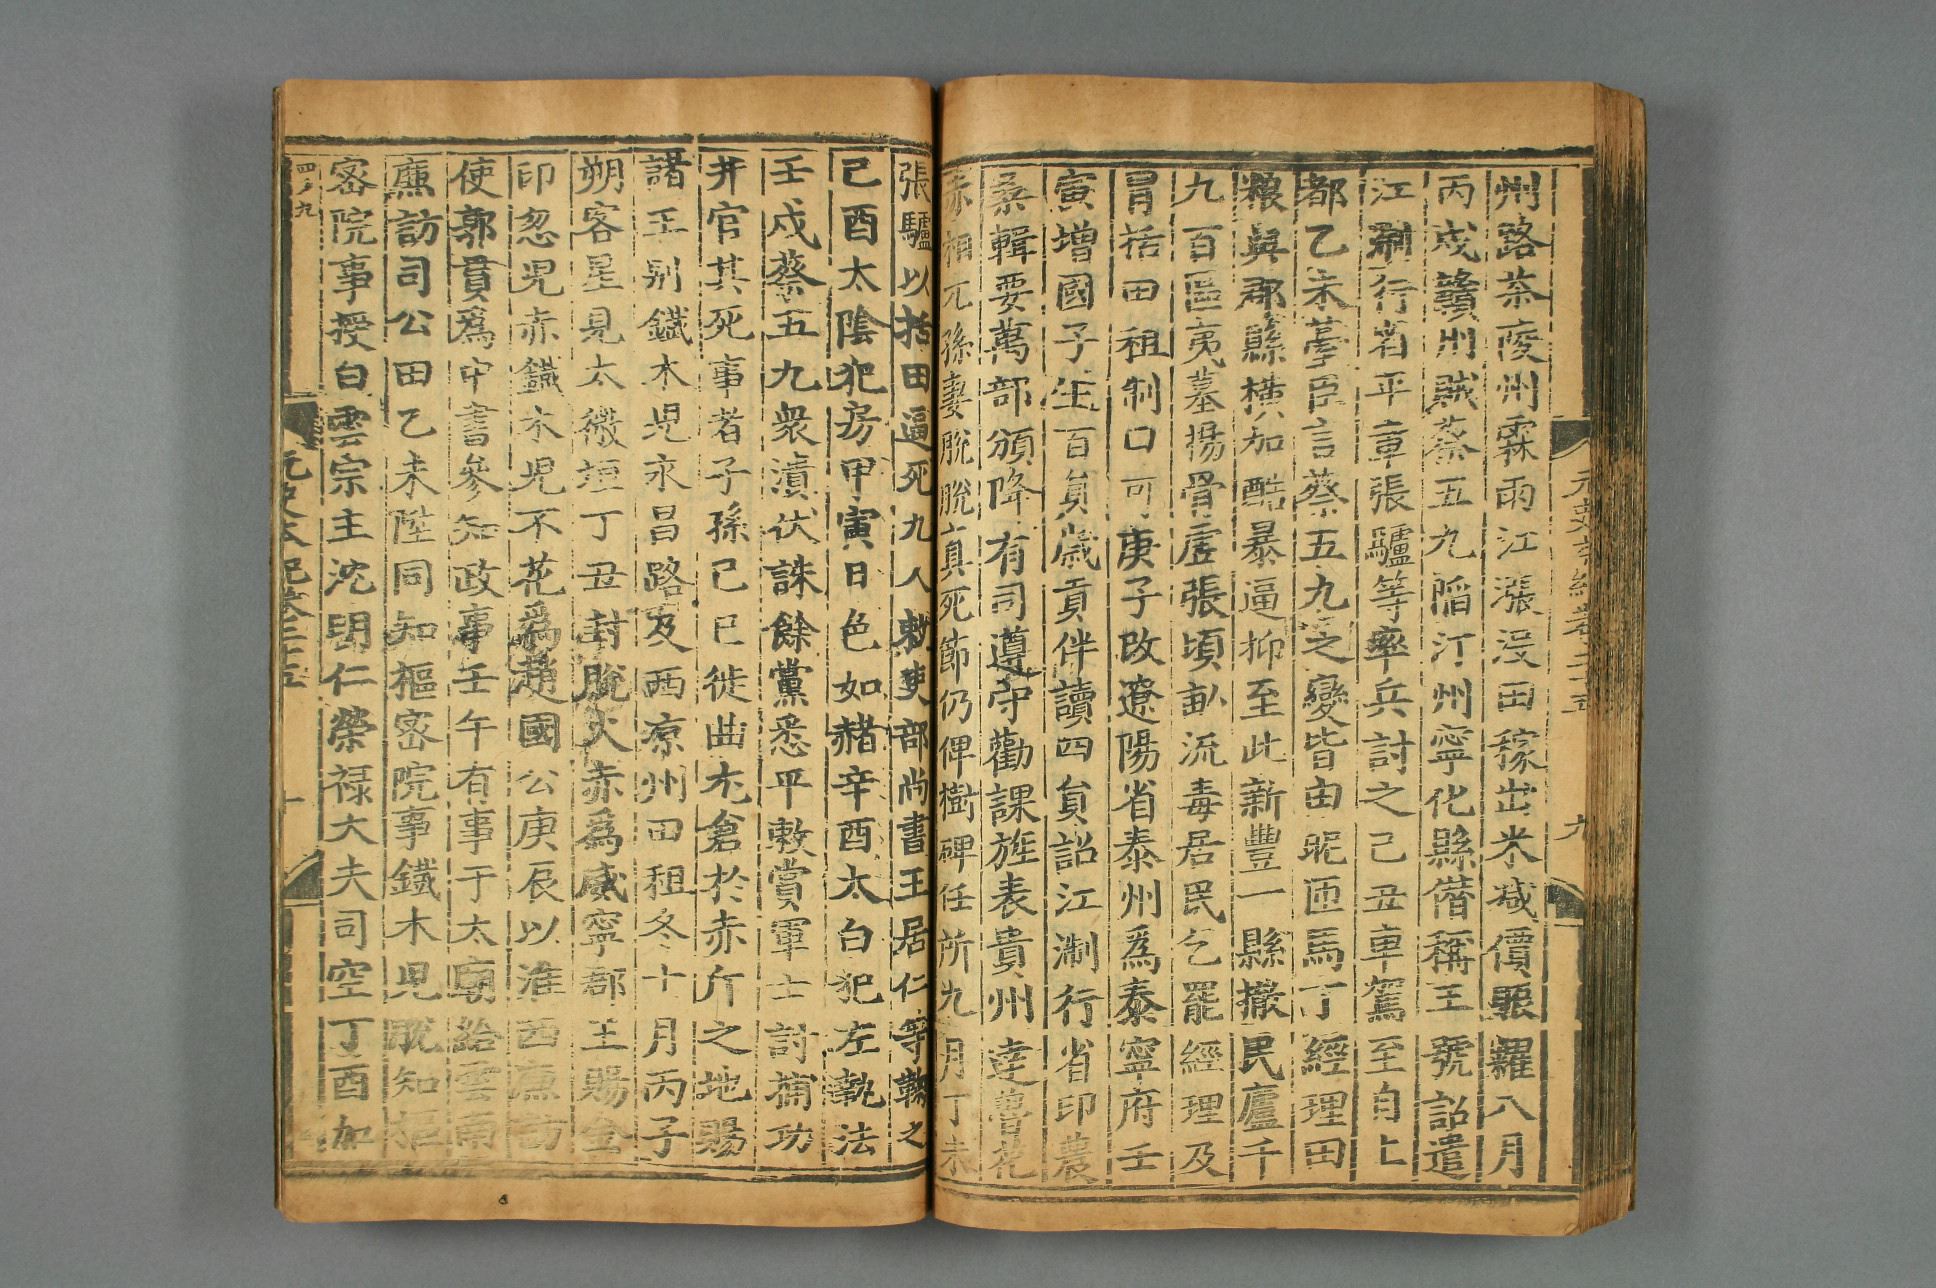 州路茶陵州霖雨江漲沒田稼出米減價賑糶八月
丙戌贛州賊蔡五九陷汀州寧化縣僣稱王號詔遣
江浙行省平章張驢等率兵討之己丑車駕至自上
都乙未臺臣言蔡五九之變皆由昵匝馬丁經理田
粮與郡縣橫加酷暴逼抑至此新豐一縣撤民廬千
九百區夷墓揚骨虛張頃畝流毒居民乞罷經理及
冒括田租制曰可庚子改遼陽省泰州爲泰寧府壬
寅增國子生百員歲貢伴讀四員詔江浙行省印農
桑輯要萬部頒降有司遵守勸課旌表貴州達魯花
赤相兀孫妻脫脫真死節仍俾樹碑任所九月丁未
張驢以括田逼死九人敕吏部尚書王居仁等鞫之
己酉太陰犯房甲寅日色如赭辛酉太白犯左執法
壬戌蔡五九衆潰伏誅餘黨悉平敕賞軍士討捕功
并官其死事者子孫己巳徙曲尢倉於赤斤之地賜
諸王别鐵木兒永昌路及西凉州田租冬十月丙子
朔客星見太微垣丁丑封脫火赤爲威寧郡王賜金
印忽兒赤鐵木兒不花爲趙國公庚辰以淮西廉訪
使郭貫爲中書參知政事壬午有事于太廟給雲南
廉訪司公田乙未陞同知樞密院事鐵木兒脫知樞
密院事授白雲宗主沈明仁榮禄大夫司空丁酉加
元史本紀卷二十五
九
四ノ九
元史本紀卷二十五
十